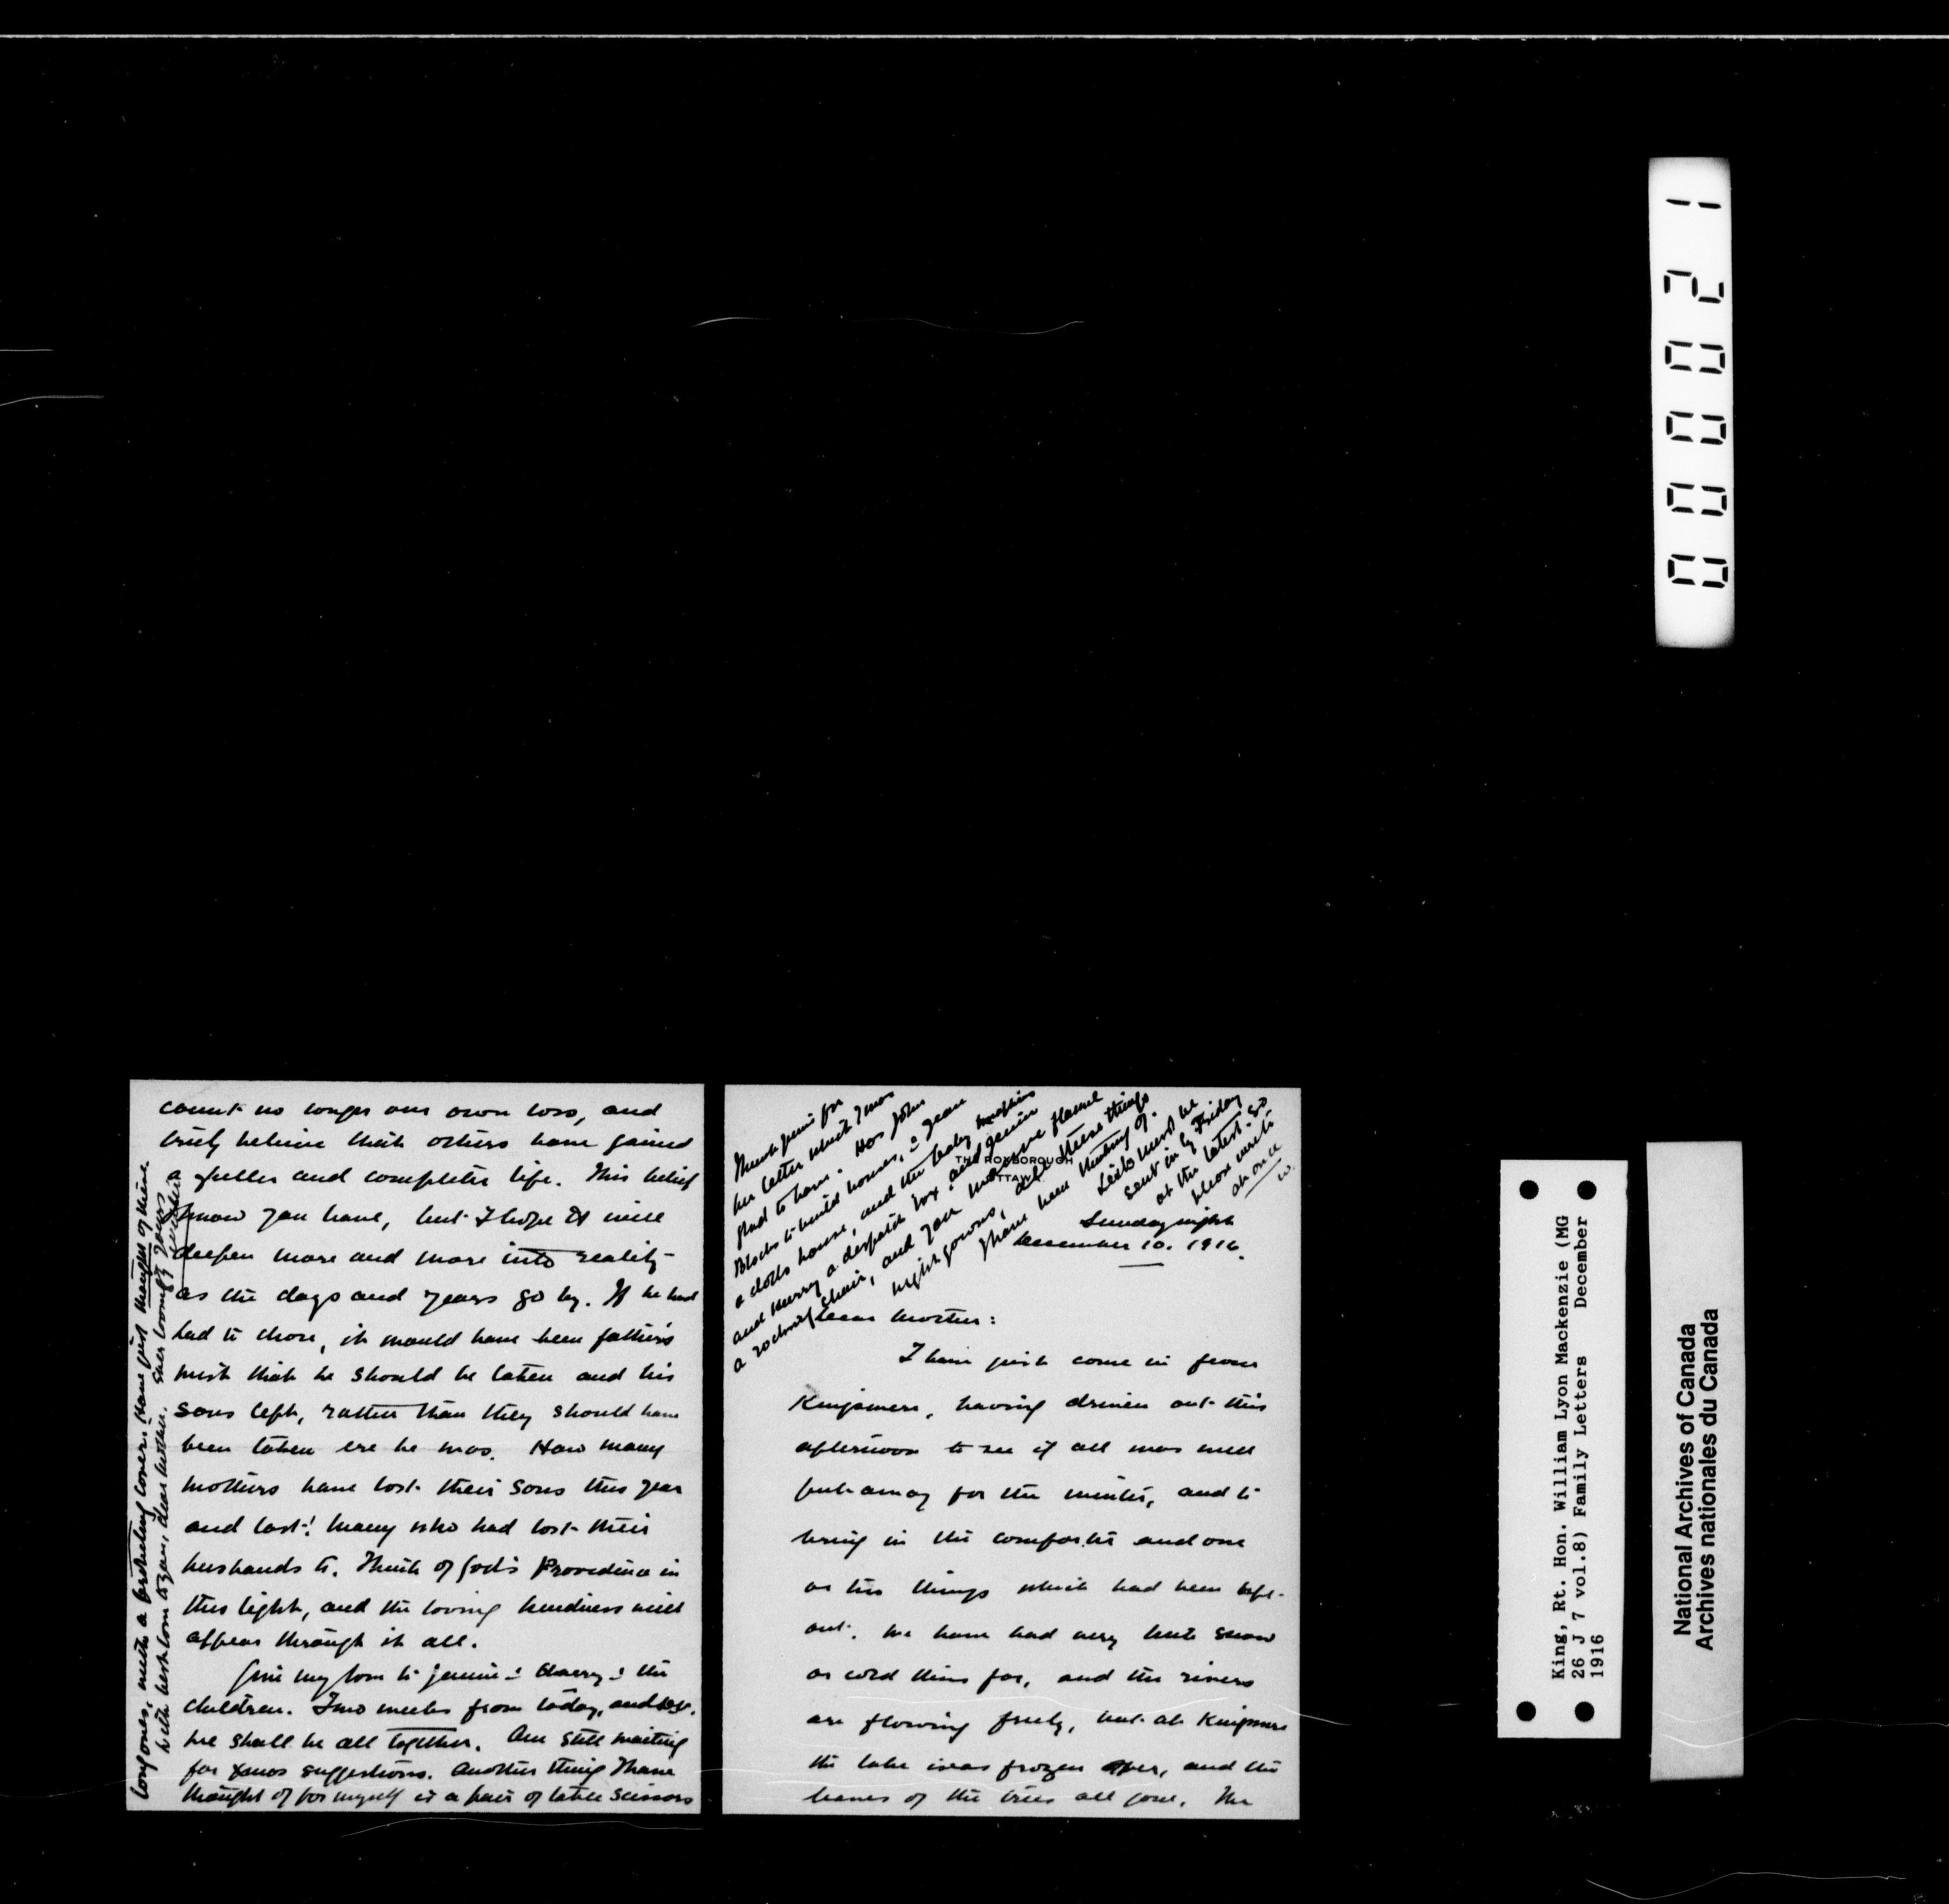 count no longer our own loss, and
truly believe that others have gained
a fuller and completer life. This belief
I know you have, but I hope it will
deepen more and more into reality
as the days and years go by. If he had
had to chose, it would have been father's
wish that he should be taken and his
sons left, rather than they should have
been taken ere he was. How many
mothers have lost their sons this year
and last! Many who had lost their
husbands to. Think of God's Providence in
this light, and the loving kindness will
appear through it all.
Give my love to Jennie & Harry & the
children. Two weeks from today, and
we shall be all together. Am still waiting
for Xmas suggestions. Another thing I have
thought of for myself is a pair of table scissors
long ones, with a protecting cover. Have just thought of them.
With best love to you, dear mother. Ever lovingly yours
Thank Jennie for
her letter which I was
glad to have. Has John
Blocks to build houses, & Jean
a dolls house, and the baby
and Harry a despatch box and Jennie
a rocking chair, and you
night gowns, all these things
I have been thinking of.
Lists must be
sent in by Friday
at the latest. so
please write
at once
W.
THE ROXBOROUGH
OTTAWA
Sunday night
December 10. 1916.
Dear Mother:
I have just come in from
Kingsmere, having driven out this
afternoon to see if all was well
put away for the winter, and to
bring in the comforter and one
or two things which had been left
out. We have had very little snow
or cold thus far, and the rivers
are flowing freely, but at Kingsmere
the lake was frozen over, and the
leaves of the trees all gone. The
000021
King, Rt. Hon. William Lyon Mackenzie (MG
26 J 7 vol.8) Family Letters December
1916
National Archives of Canada
Archives nationales du Canada